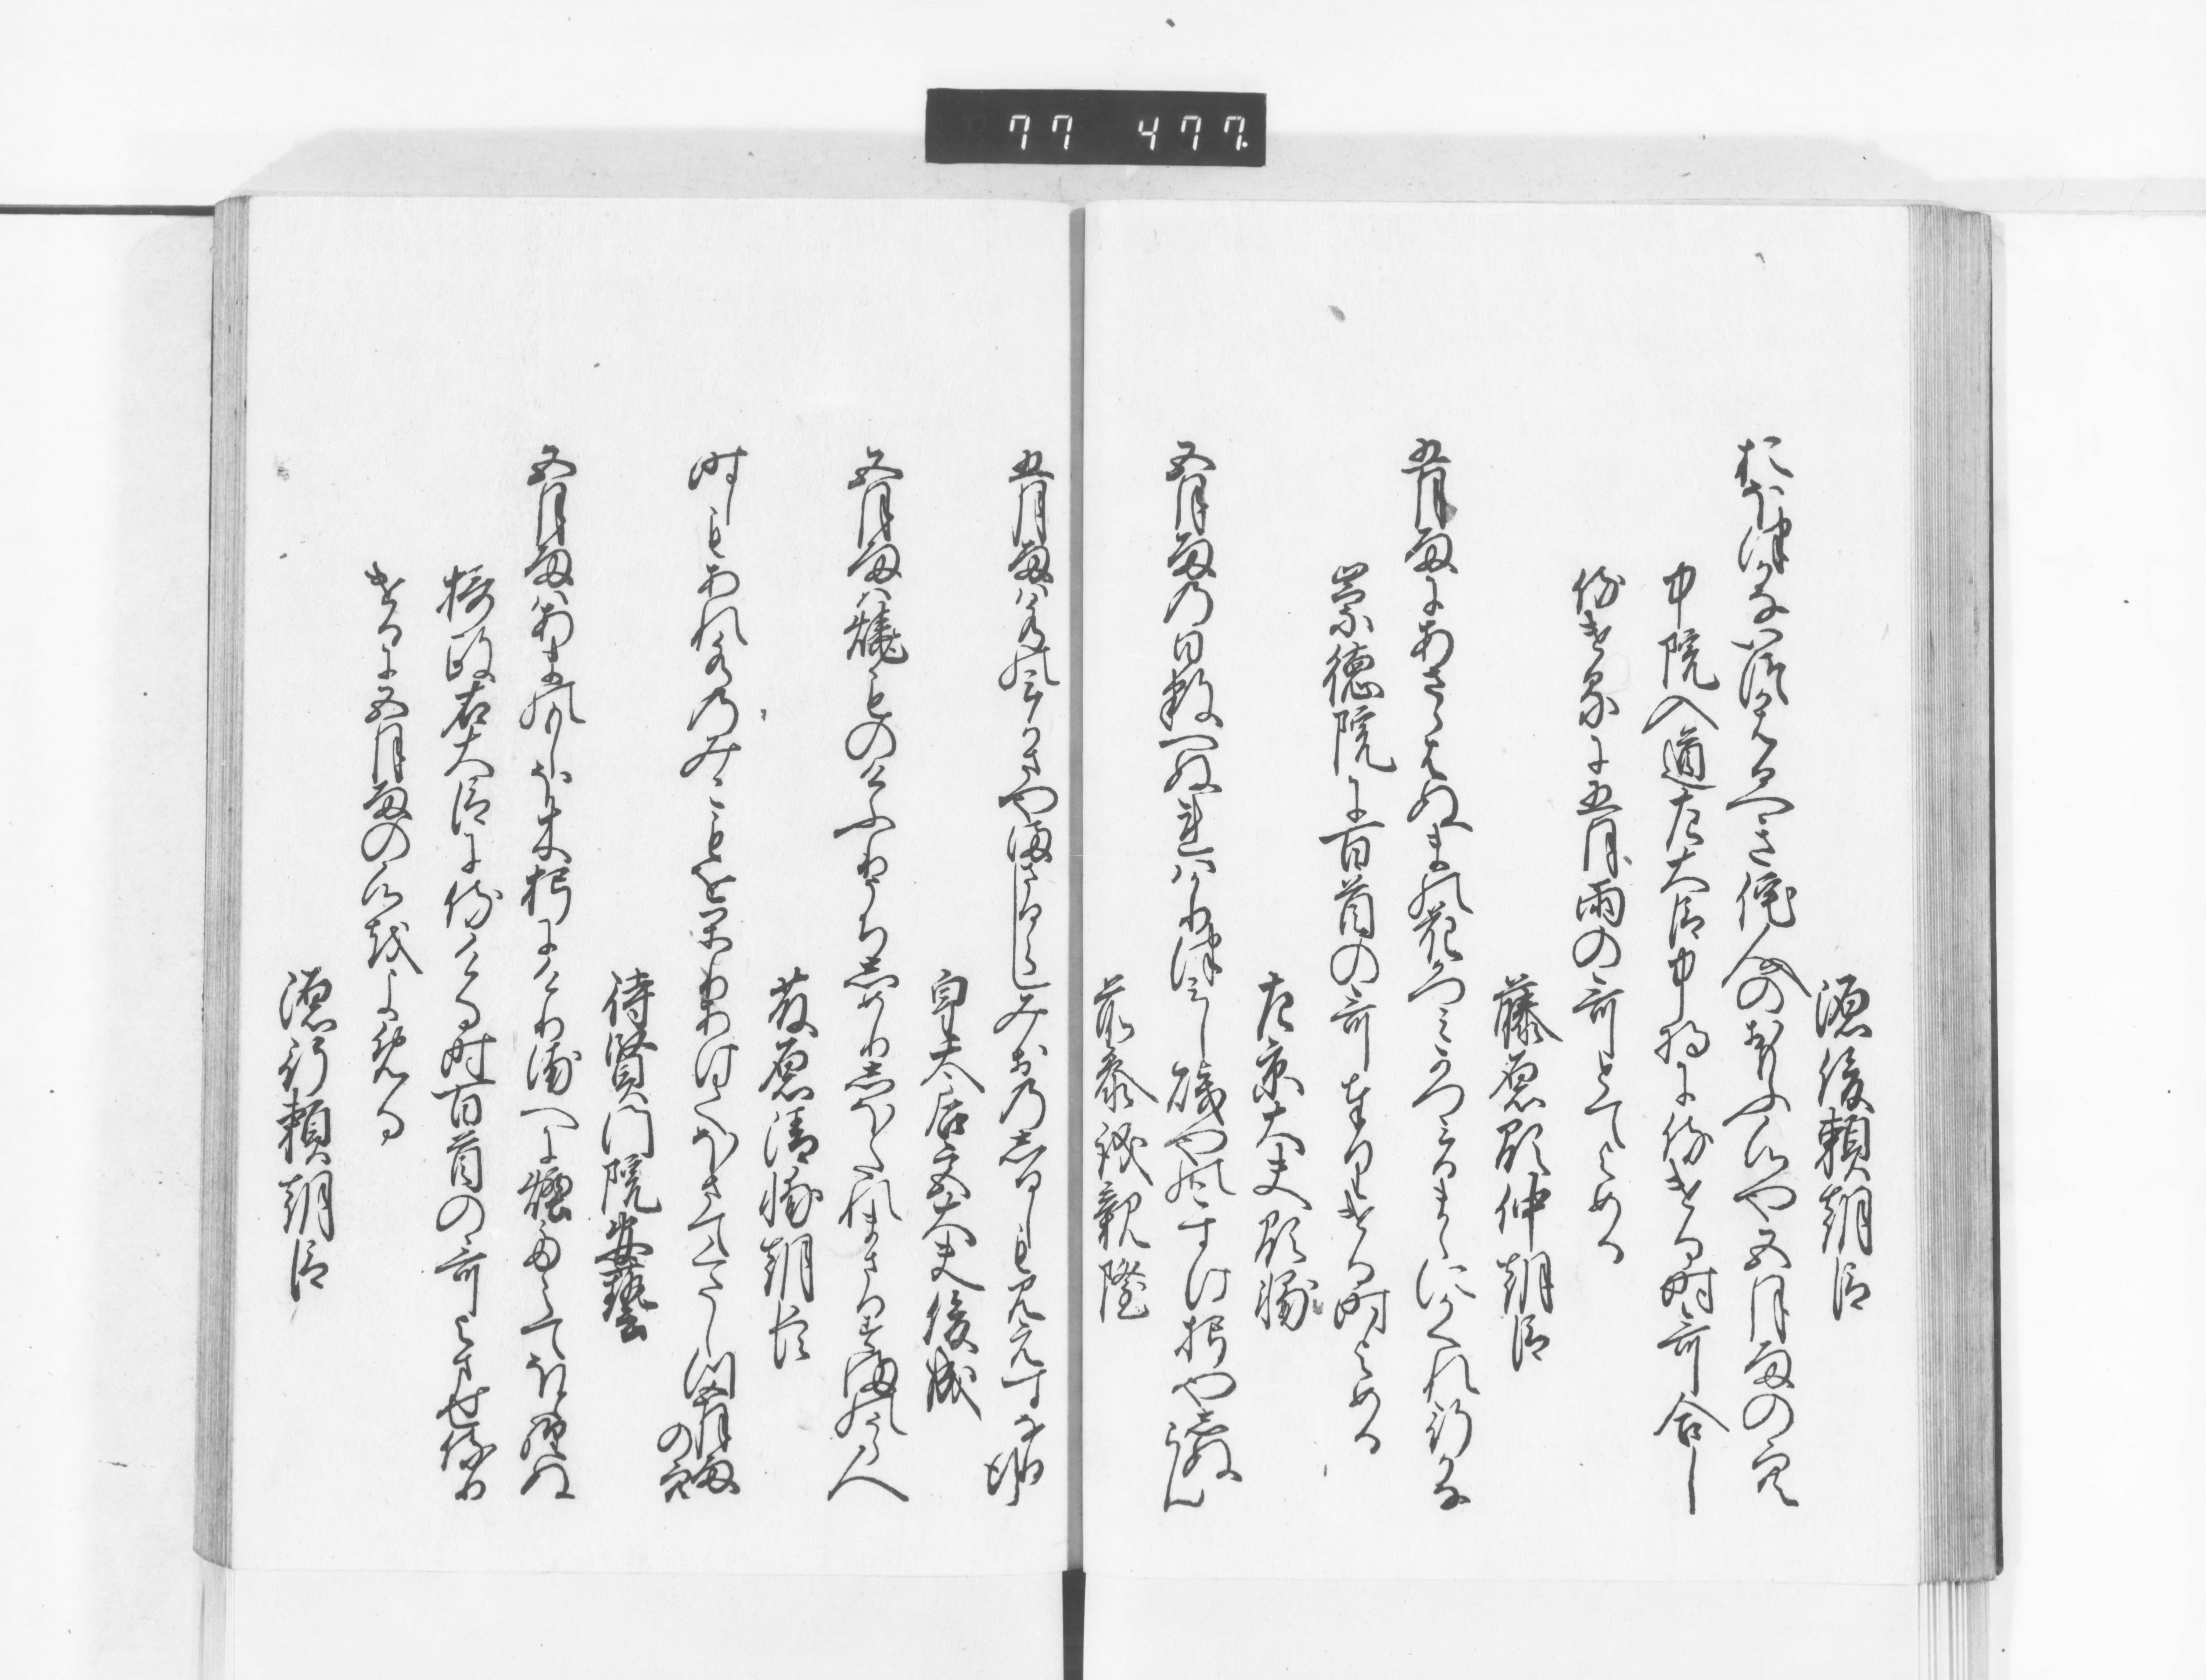 77 477
源俊頼朝臣
おほ津かないつかはるへき侘人のおもふ心や五月雨の空
中院入道右大臣中将に侍ける時哥合し
侍けるに五月雨の哥とてよめる
藤原顕仲朝臣
五月雨にあさゝはぬまの花かつみかつみるまゝにかくれ行かな
崇徳院に百首の哥奉りける時よめる
左京大夫顕輔
五月雨の日数へぬれはかり津みし賤やのこすけ朽やしぬらん
前参議親隆
五月雨は水のみかさやまさるらしみおのしるしも見えすなり行
皇太后宮大夫俊成
五月雨は焼ものけふりうちしめりしほたれまさるすまの浦人
藤原清輔朝臣
時しもあれ水のみこもをかりあけてほさてくたしつ五月雨の空
待賢門院安藝
五月雨はあまのもしほ木朽にけり浦へに煙たえてほとへぬ
摂政右大臣に侍ける時百首の哥よませ侍り
けるに五月雨の心をよめる
源行頼朝臣